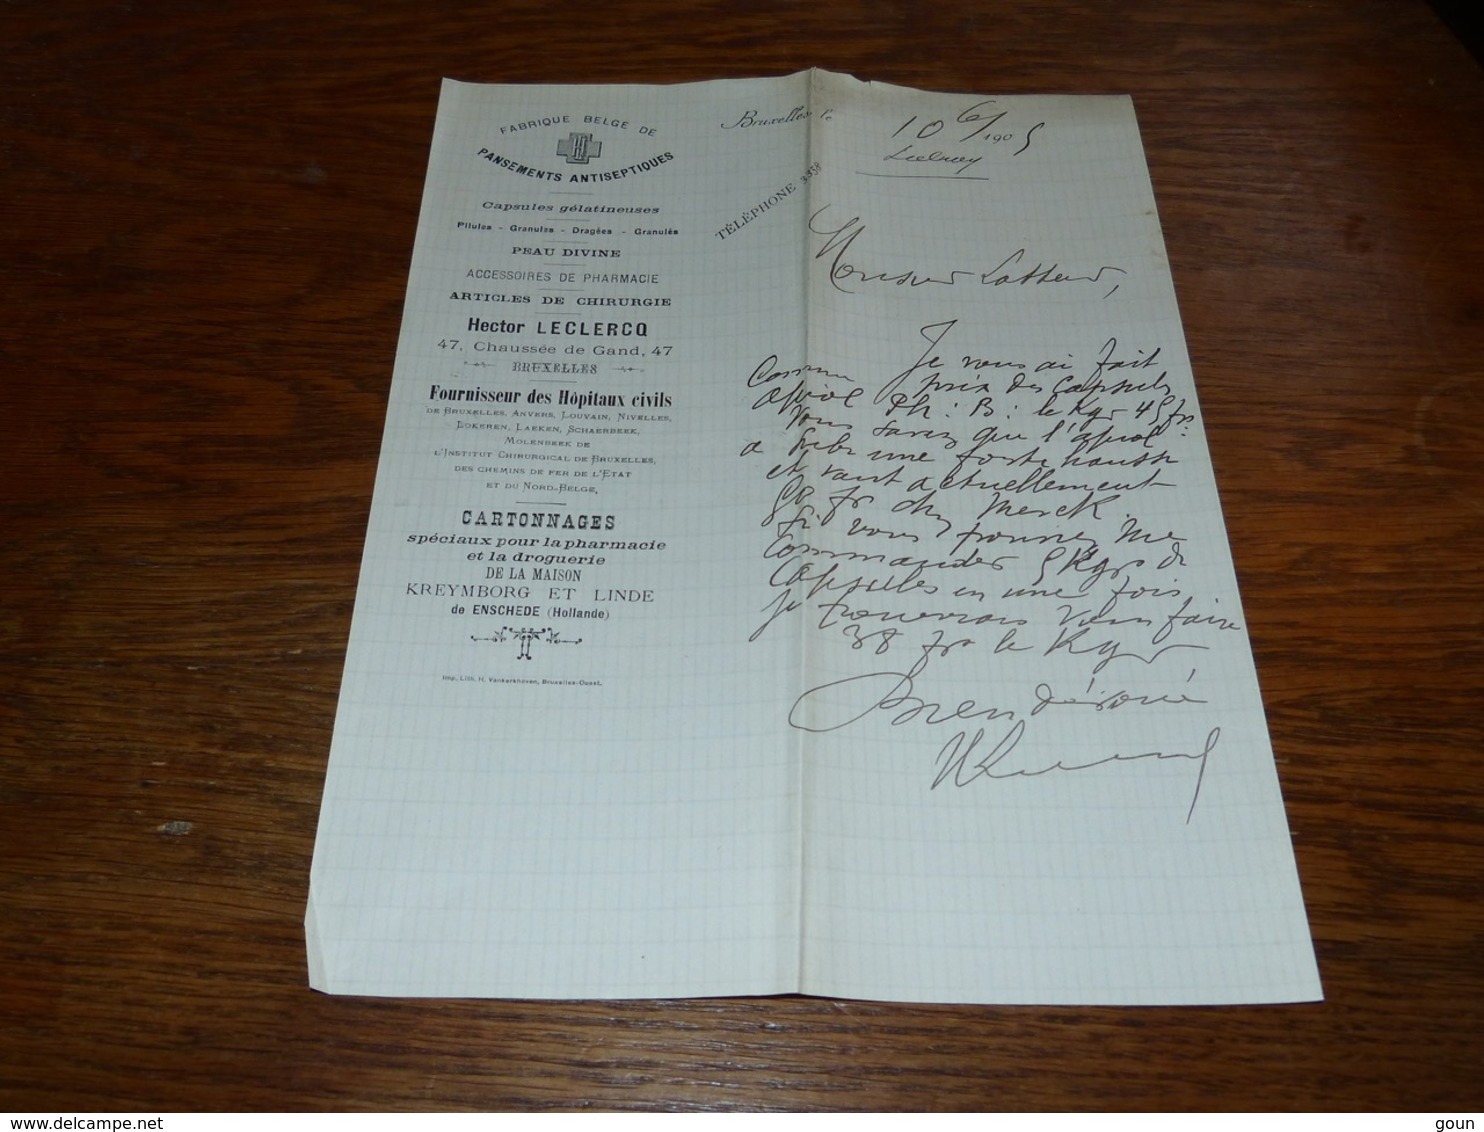 FABRIQUE BELGE DE
PANSEMENTS ANTISEPTIQUES
Capsules gélatineuses
Pilules - Granules - Dragées - Granulés
PEAU DIVINE
ACCESSOIRES DE PHARMACIE
ARTICLES DE CHIRURGIE
Hector LECLERCQ
47, Chaussée de Gand, 47
BRUXELLES
Fournisseur des Hôpitaux civils
DE BRUXELLES, ANVERS, LOUVAIN, NIVELLES,
LOKEREN, LAEKEN, SCHAERBEEK,
MOLENBEEK DE
L'INSTITUT CHIRURGICAL DE BRUXELLES,
DES CHEMINS DE FER DE L'ETAT
ET DU NORD-BELGE.
CARTONNAGES
spéciaux pour la pharmacie
et la droguerie
DE LA MAISON
KREYMBORG ET LINDE
de ENSCHEDE (Hollande)
Imp. Lith. H. Vankerkhoven, Bruxelles-Ouest.
Bruxelles, le 10/6 1905
TÉLÉPHONE 3358
Monsieur
Je vous ai fait
comme prix des capsules
apiol Ph: B: le Kgr 45 frs:
Vous savez que l'apiol
a subi une forte hausse
et vaut actuellement
fr chez Merck.
Si vous pouvez me
commander 5 Kgrs de
capsules en une fois
je pourrais vous faire
38 frs le Kgr
Bien dévoué